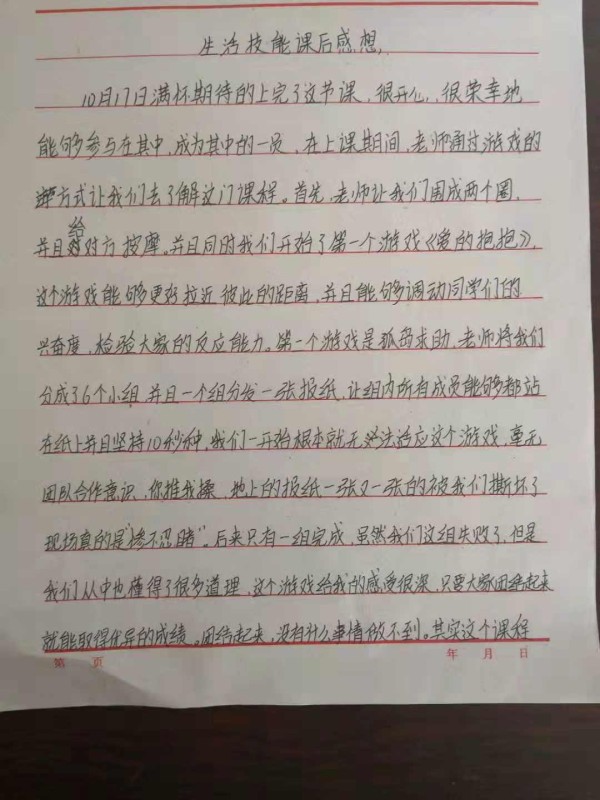 生活技能课后感想
10月17日满怀期待的上完了这节课,很开心,很荣幸地
能够参与在其中,成为其中的一员,在上课期间,老师通过游戏的
方式让我们去了解这门课程。首先,老师让我们围成两个圈,
并且给对方按摩。并且同时我们开始了第一个游戏《爱的抱抱》,
这个游戏能够更好拉近彼此的距离,并且能够调动同学们的
兴奋度,检验大家的反应能力。第一个游戏是孤岛求助,老师将我们
分成了6个小组,并且一个组分发一张报纸,让组内所有成员能够都站
在纸上并且坚持10秒种,我们一开始根本就无法适应这个游戏,毫无
团队合作意识,你推我攘,地上的报纸一张又一张的被我们撕坏了
现场真的是"惨不忍睹"。后来只有一组完成,虽然我们这组失败了,但是
我们从中也懂得了很多道理,这个游戏给我的感受很深,只要大家团结起来
就能取得优异的成绩。团结起来,没有什么事情做不到。其实这个课程
第 页 年 月 日